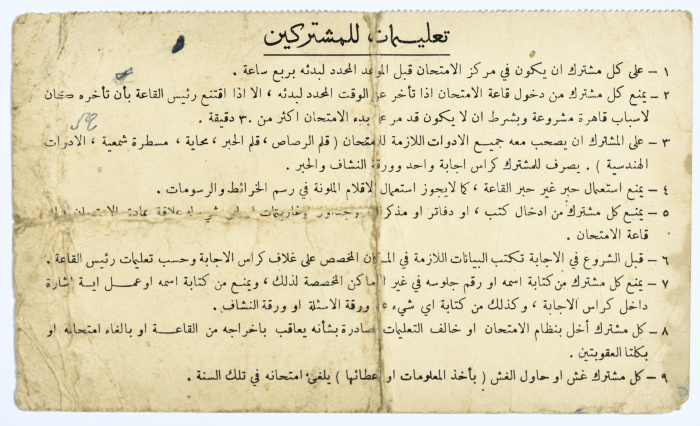 تعليمات للمشتركين
١ – على كل مشترك ان يكون في مركز الامتحان قبل الموعد المحدد لبدئه بربع ساعة .
٢ – يمنع كل مشترك من دخول قاعة الامتحان اذا تأخر عن الوقت المحدد لبدئه ، الا اذا اقتنع رئيس القاعة بأن تأخره كان
لاسباب قاهرة مشروعة وبشرط ان لا يكون قد مر على بدء الامتحان اكثر من ٣٠ دقيقة .
٣ – على المشترك ان يصحب معه جميع الادوات اللازمة للامتحان ( قلم الرصاص ، قلم الحبر ، محاية ، مسطرة شمعية ، الادوات
الهندسية ) . يصرف للمشترك كراس اجابة واحد وورقة النشاف والحبر .
٤ – يمنع استعمال حبر غير حبر القاعة ، كما لايجوز استعمال الاقلام الملونة في رسم الخرائط والرسومات .
٥ – يمنع كل مشترك من ادخال كتب ، او دفاتر او مذكرات وجداول وخاريتات او اي شيء له علاقة بمادة الامتحان
قاعة الامتحان .
٦ – قبل الشروع في الاجابة تكتب البيانات اللازمة في المكان المخصص على غلاف كراس الاجابة وحسب تعليمات رئيس القاعة .
٧ – يمنع كل مشترك من كتابة اسمه او رقم جلوسه في غير الاماكن المخصصة لذلك ، ويمنع من كتابة اسمه او عمل اية اشارة
داخل كراس الاجابة ، وكذلك من كتابة اي شيء على ورقة الاسئلة او ورقة النشاف .
٨ – كل مشترك أخل بنظام الامتحان او خالف التعليمات الصادرة بشأنه يعاقب باخراجه من القاعة او بالغاء امتحانه او
بكلتا العقوبتين .
٩ – كل مشترك غش او حاول الغش ( بأخذ المعلومات او اعطائها ) يلغى امتحانه في تلك السنة .